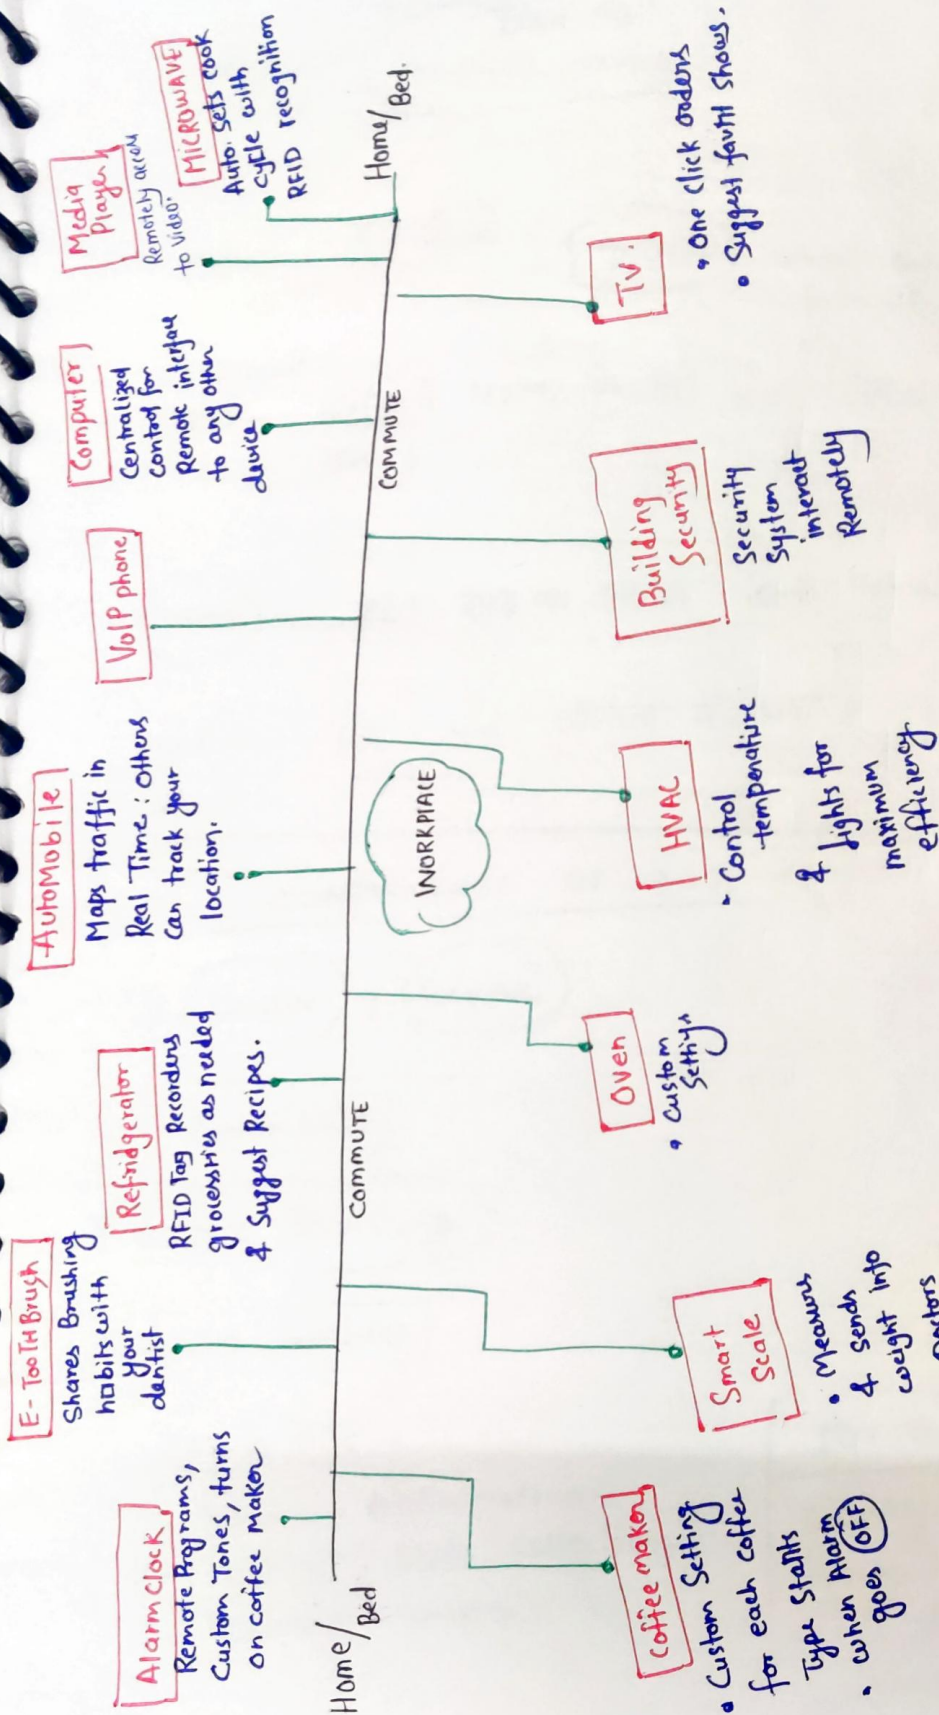 Alarm clock
Remote Programs,
Custom Tones, turns
on coffee maker
E-TooTHBrush
Shares Brushing
habits with
your
dentist
Refridgerator
RFID Tag Recorders
grocessries as needed
& Suggest Recipes.
AutoMobile
Maps traffic in
Real Time: others
can track your
location.
VoIP phone
Computer
Centralized
control for
Remote interface
to any other
device
Media
Player
Remotely access
to video.
MICROWAVE
Auto. sets cook
cycle with
RFID recognition
Home/
Bed
COMMUTE
WORKPLACE
COMMUTE
Home/
Bed.
Coffee maker
• Custom Setting
for each coffee
Type Starts
• when Alarm
goes OFF
Smart
Scale
• Measures
& sends
weight info
Oven
• Custom
Settings
HVAC
• Control
temperature
& lights for
maximum
efficiency
Building
Security
Security
System
interact
Remotely
TV.
• One click orders
• Suggest favrit shows.